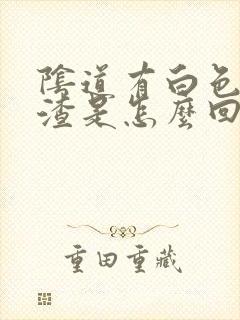 陰道有白色
渣是怎麼回
重田重藏